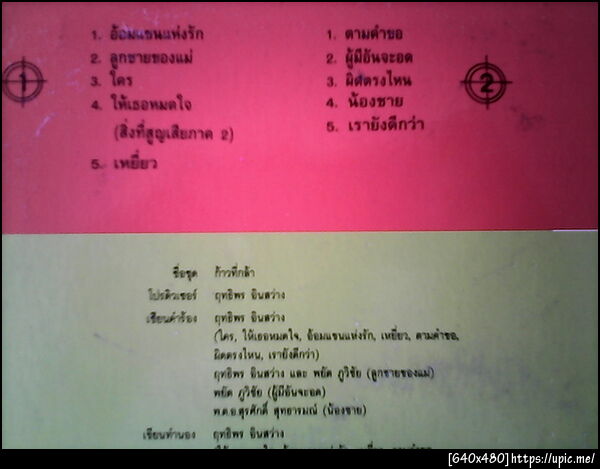 1. อ้อมแขนแห่งรัก
2. ลูกชายของแม่
3. ใคร
4. ให้เธอหมดใจ
(สิ่งที่สูญเสียภาค 2)
5. เหยี่ยว
1
1. ตามคำขอ
2. ผู้มีอันจะอด
3. ผิดตรงไหน
4. น้องชาย
5. เรายังดีกว่า
2
ชื่อชุด ก้าวที่กล้า
โปรดิวเซอร์ ฤทธิพร อินสว่าง
เขียนคำร้อง ฤทธิพร อินสว่าง
(ใคร, ให้เธอหมดใจ, อ้อมแขนแห่งรัก, เหยี่ยว, ตามคำขอ,
ผิดตรงไหน, เรายังดีกว่า)
ฤทธิพร อินสว่าง และ พยัต ภูวิชัย (ลูกชายของแม่)
พยัต ภูวิชัย (ผู้มีอันจะอด)
พ.ต.อ.สุรศักดิ์ สุทธารมณ์ (น้องชาย)
เขียนทำนอง ฤทธิพร อินสว่าง
[640x480]https://upic.me/